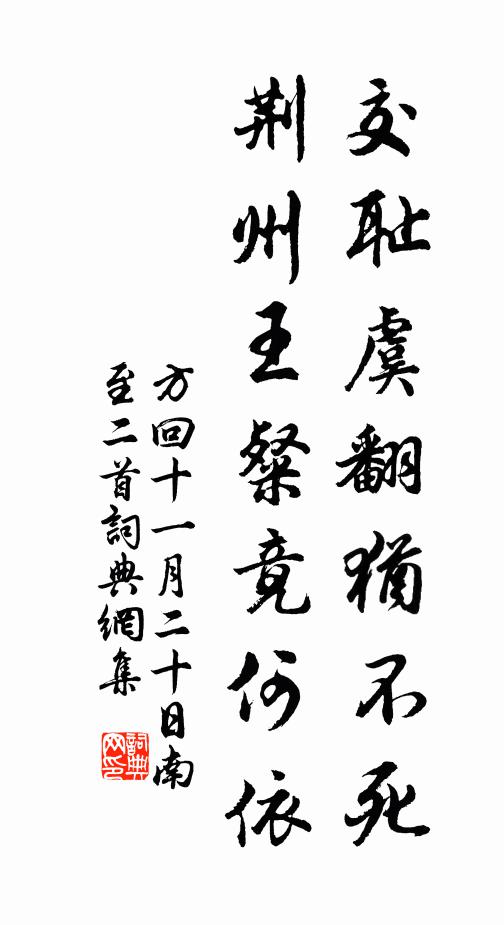 交耻虞翻猶不死
荆州王粲竟何依
方回十一月二十日南
至二首詞典網集
詞典网印